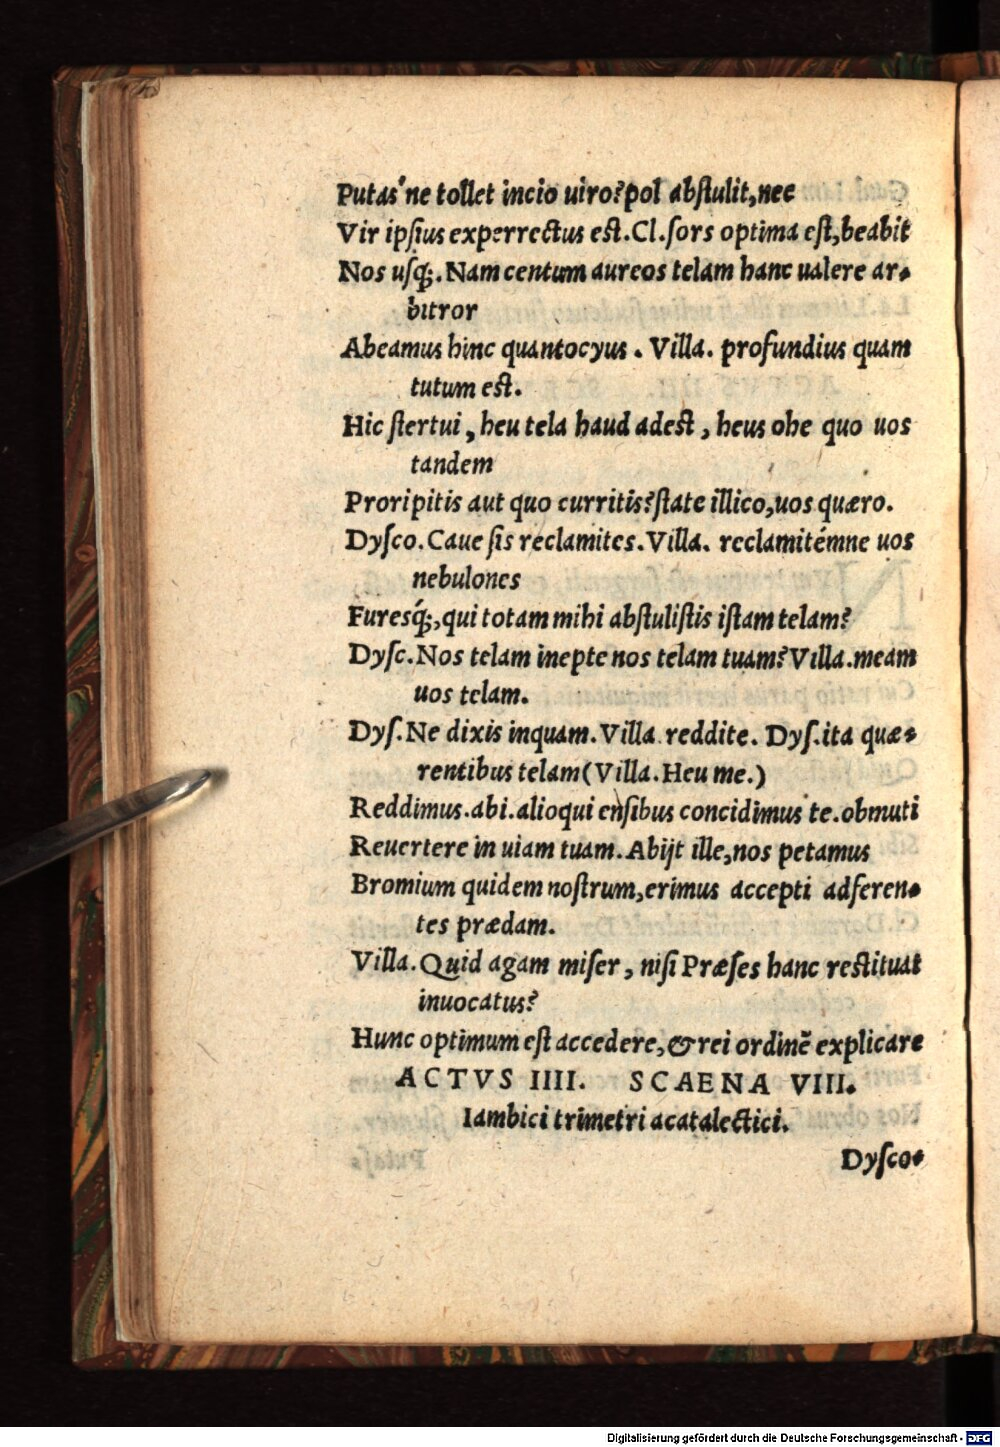 Putas'ne tollet incio uiro?pol abstulit,nec
Vir ipsius experrectus est.Cl.sors optima est,beabit
Nos usq;.Nam centum aureos telam hanc ualere ar-
bitror
Abeamus hinc quantocyus. Villa. profundius quam
tutum est.
Hic stertui, heu tela haud adest, heus ohe quo uos
tandem
Proripitis aut quo curritis?state illico,uos quæro.
Dysco.Caue sis reclamites.Villa. reclamitémne uos
nebulones
Furesq́;,qui totam mihi abstulistis istam telam?
Dysc.Nos telam inepte nos telam tuam?Villa.meam
uos telam.
Dys.Ne dixis inquam.Villa reddite. Dys.ita quæ-
rentibus telam(Villa.Heu me.)
Reddimus.abi.alioqui ensibus concidimus te.obmuti
Reuertere in uiam tuam.Abijt ille,nos petamus
Bromium quidem nostrum,erimus accepti adferen-
tes prædam.
Villa.Quid agam miser, nisi Præses hanc restituat
inuocatus?
Hunc optimum est accedere,&rei ordinē explicare
ACTVS IIII. SCAENA VIII.
Iambici trimetri acatalectici.
Dysco-
Digitalisierung gefördert durch die Deutsche Forschungsgemeinschaft - DFG